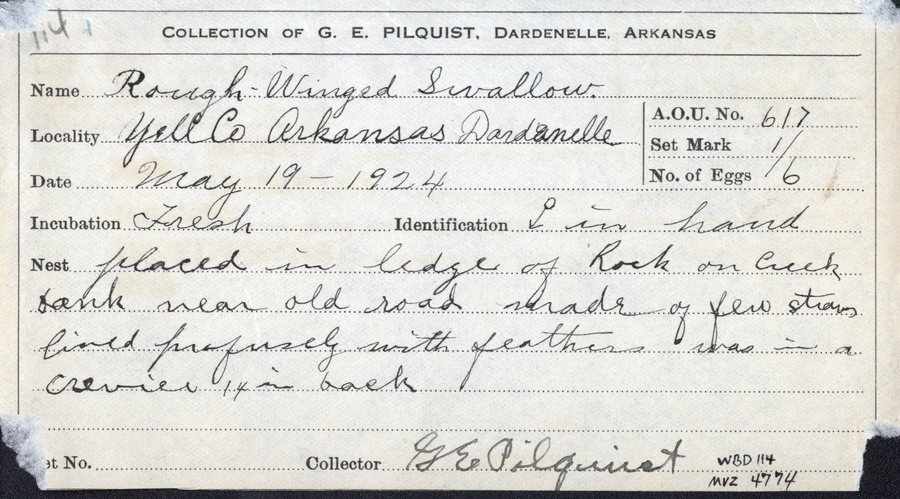 114
COLLECTION OF G. E. PILQUIST, DARDENELLE, ARKANSAS
Name Rough-Winged Swallow.
Locality Yell Co Arkansas Dardanelle
A.O.U. No. 617
Set Mark 1/
Date May 19 - 1924
No. of Eggs 6
Incubation Fresh Identification ♀ in hand
Nest placed in ledge of Rock on Creek
bank near old road made of few straws
lined profusely with feathers was in a
crevice 14 in back
et No. Collector G E Pilquist
WBD 114
MVZ 4774